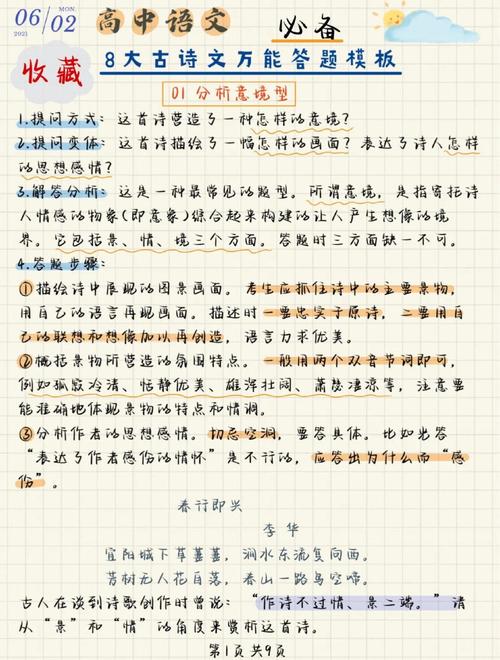 06/02
MON.
2021
高中语文
必备
收藏
8大古诗文万能答题模板
01 分析意境型
1.提问方式：这首诗营造了一种怎样的意境？
2.提问变体：这首诗描绘了一幅怎样的画面？表达了诗人怎样
的思想感情？
3.解答分析：这是一种最常见的题型。所谓意境，是指寄托诗
人情感的物象(即意象)综合起来构建的让人产生想像的境
界。它包括景、情、境三个方面。答题时三方面缺一不可。
4.答题步骤：
①描绘诗中展现的图景画面。考生应抓住诗中的主要景物，
用自己的语言再现画面。描述时一要忠实于原诗，二要用自
己的联想和想像加以再创造，语言力求优美。
②概括景物所营造的氛围特点。一般用两个双音节词即可，
例如孤寂冷清、恬静优美、雄浑壮阔、萧瑟凄凉等，注意要
能准确地体现景物的特点和情调。
③分析作者的思想感情。切忌空洞，要答具体。比如光答
“表达了作者感伤的情怀”是不行的，应答出为什么而“感
伤”。
春行即兴
李华
宜阳城下草萋萋，涧水东流复向西。
芳树无人花自落，春山一路鸟空啼。
古人在谈到诗歌创作时曾说：“作诗不过情、景二端。”请
从“景”和“情”的角度来赏析这首诗。
第1页 共9页